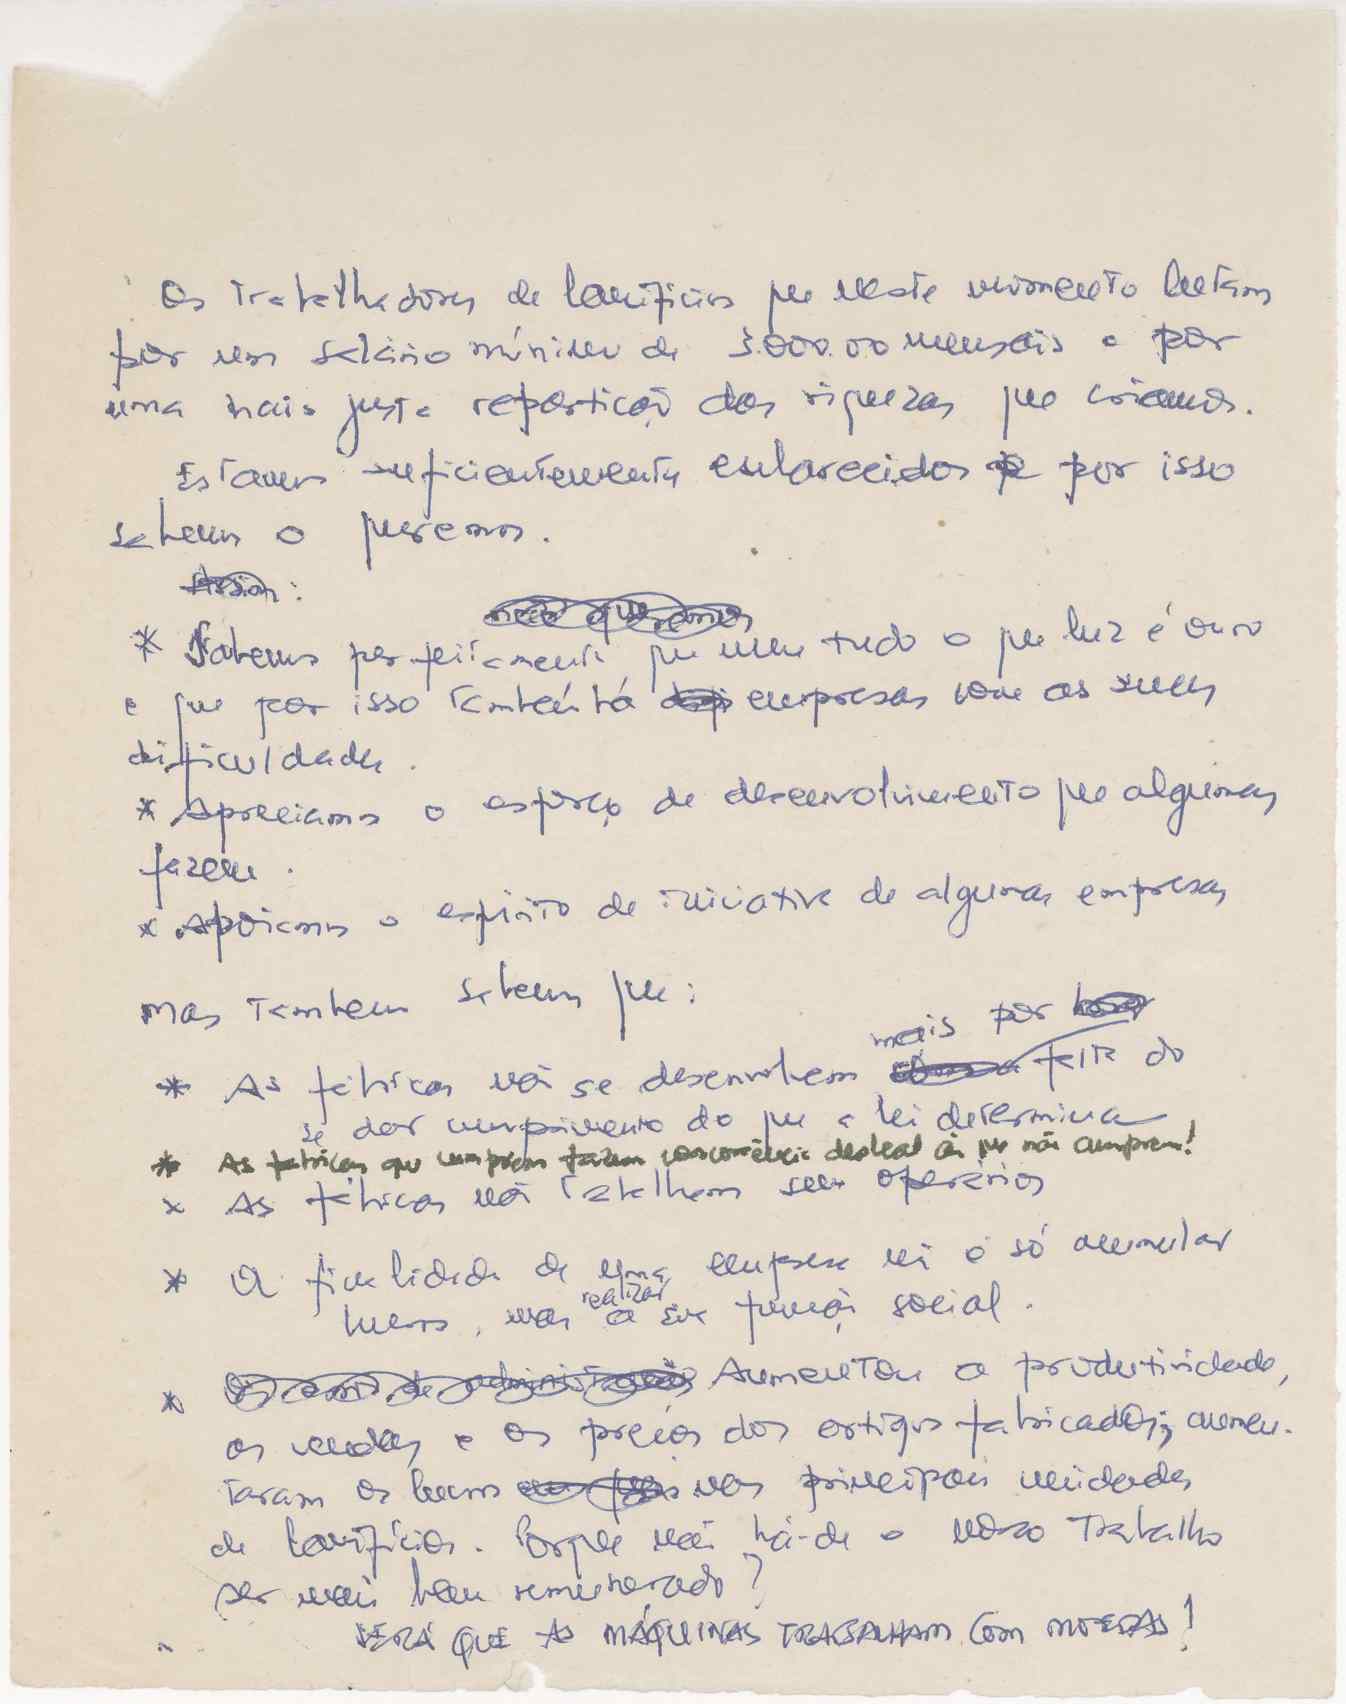 Os trabalhadores de lanifícios que neste momento lutam
por um salário mínimo de 5.000.00 mensais e por
uma mais justa repartição das riquezas que criamos.
Estamos suficientemente esclarecidos e por isso
sabemos o queremos.
Assim:
não queremos
* Sabemos perfeitamente que nem tudo o que luz é ouro
e que por isso também há empresas com as suas
dificuldades.
* Apreciamos o esforço de desenvolvimento que algumas
fazem.
* Apoiamos o espírito de iniciativa de algumas empresas
Mas também sabemos que:
mais por
* As fábricas não se desenvolvem falta do
se dar cumprimento do que a lei determina
* As fábricas que cumprem fazem concorrência desleal às que não cumprem!
x As fábricas não trabalham sem operários
* A finalidade de uma empresa não é só acumular
realizar
lucros, mas a sua função social.
* Os anos de administração Aumentou a produtividade,
as vendas e os preços dos artigos fabricados; aumen-
taram os lucros nas principais unidades
de lanifícios. Porque não há-de o nosso trabalho
ser mais bem remunerado?
SERÁ QUE AS MÁQUINAS TRABALHAM COM MOEDAS!